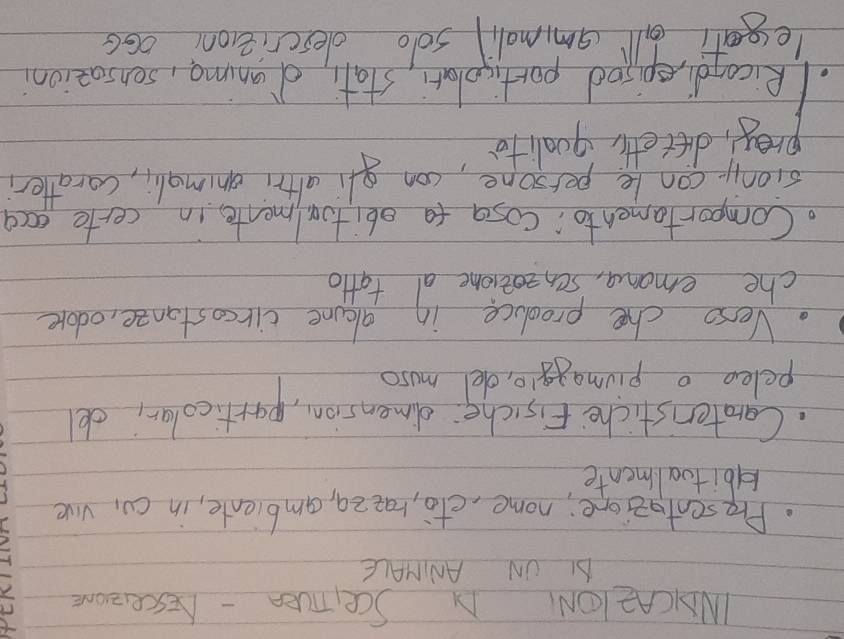 INDICAZIONI DI SCRITTURA - DESCRIZIONE
DI UN ANIMALE
• Presentazione: nome, età, razza, ambiente, in cui vive
abitualmente
• Caratteristiche Fisiche: dimensioni, particolari, del
peleo o piumaggio, del muso
• Verso che produce in alcune circostanze, odore
che emana, senzazione al tatto
• Comportamento: cosa fa abitualmente, in certe occa
sioni, con le persone, con gli altri animali, caratteri,
pregi, difetti, qualità
• Ricordi, episod particolari, stati d'anima, sensazioni
legati all' animali, solo descrizioni OGG